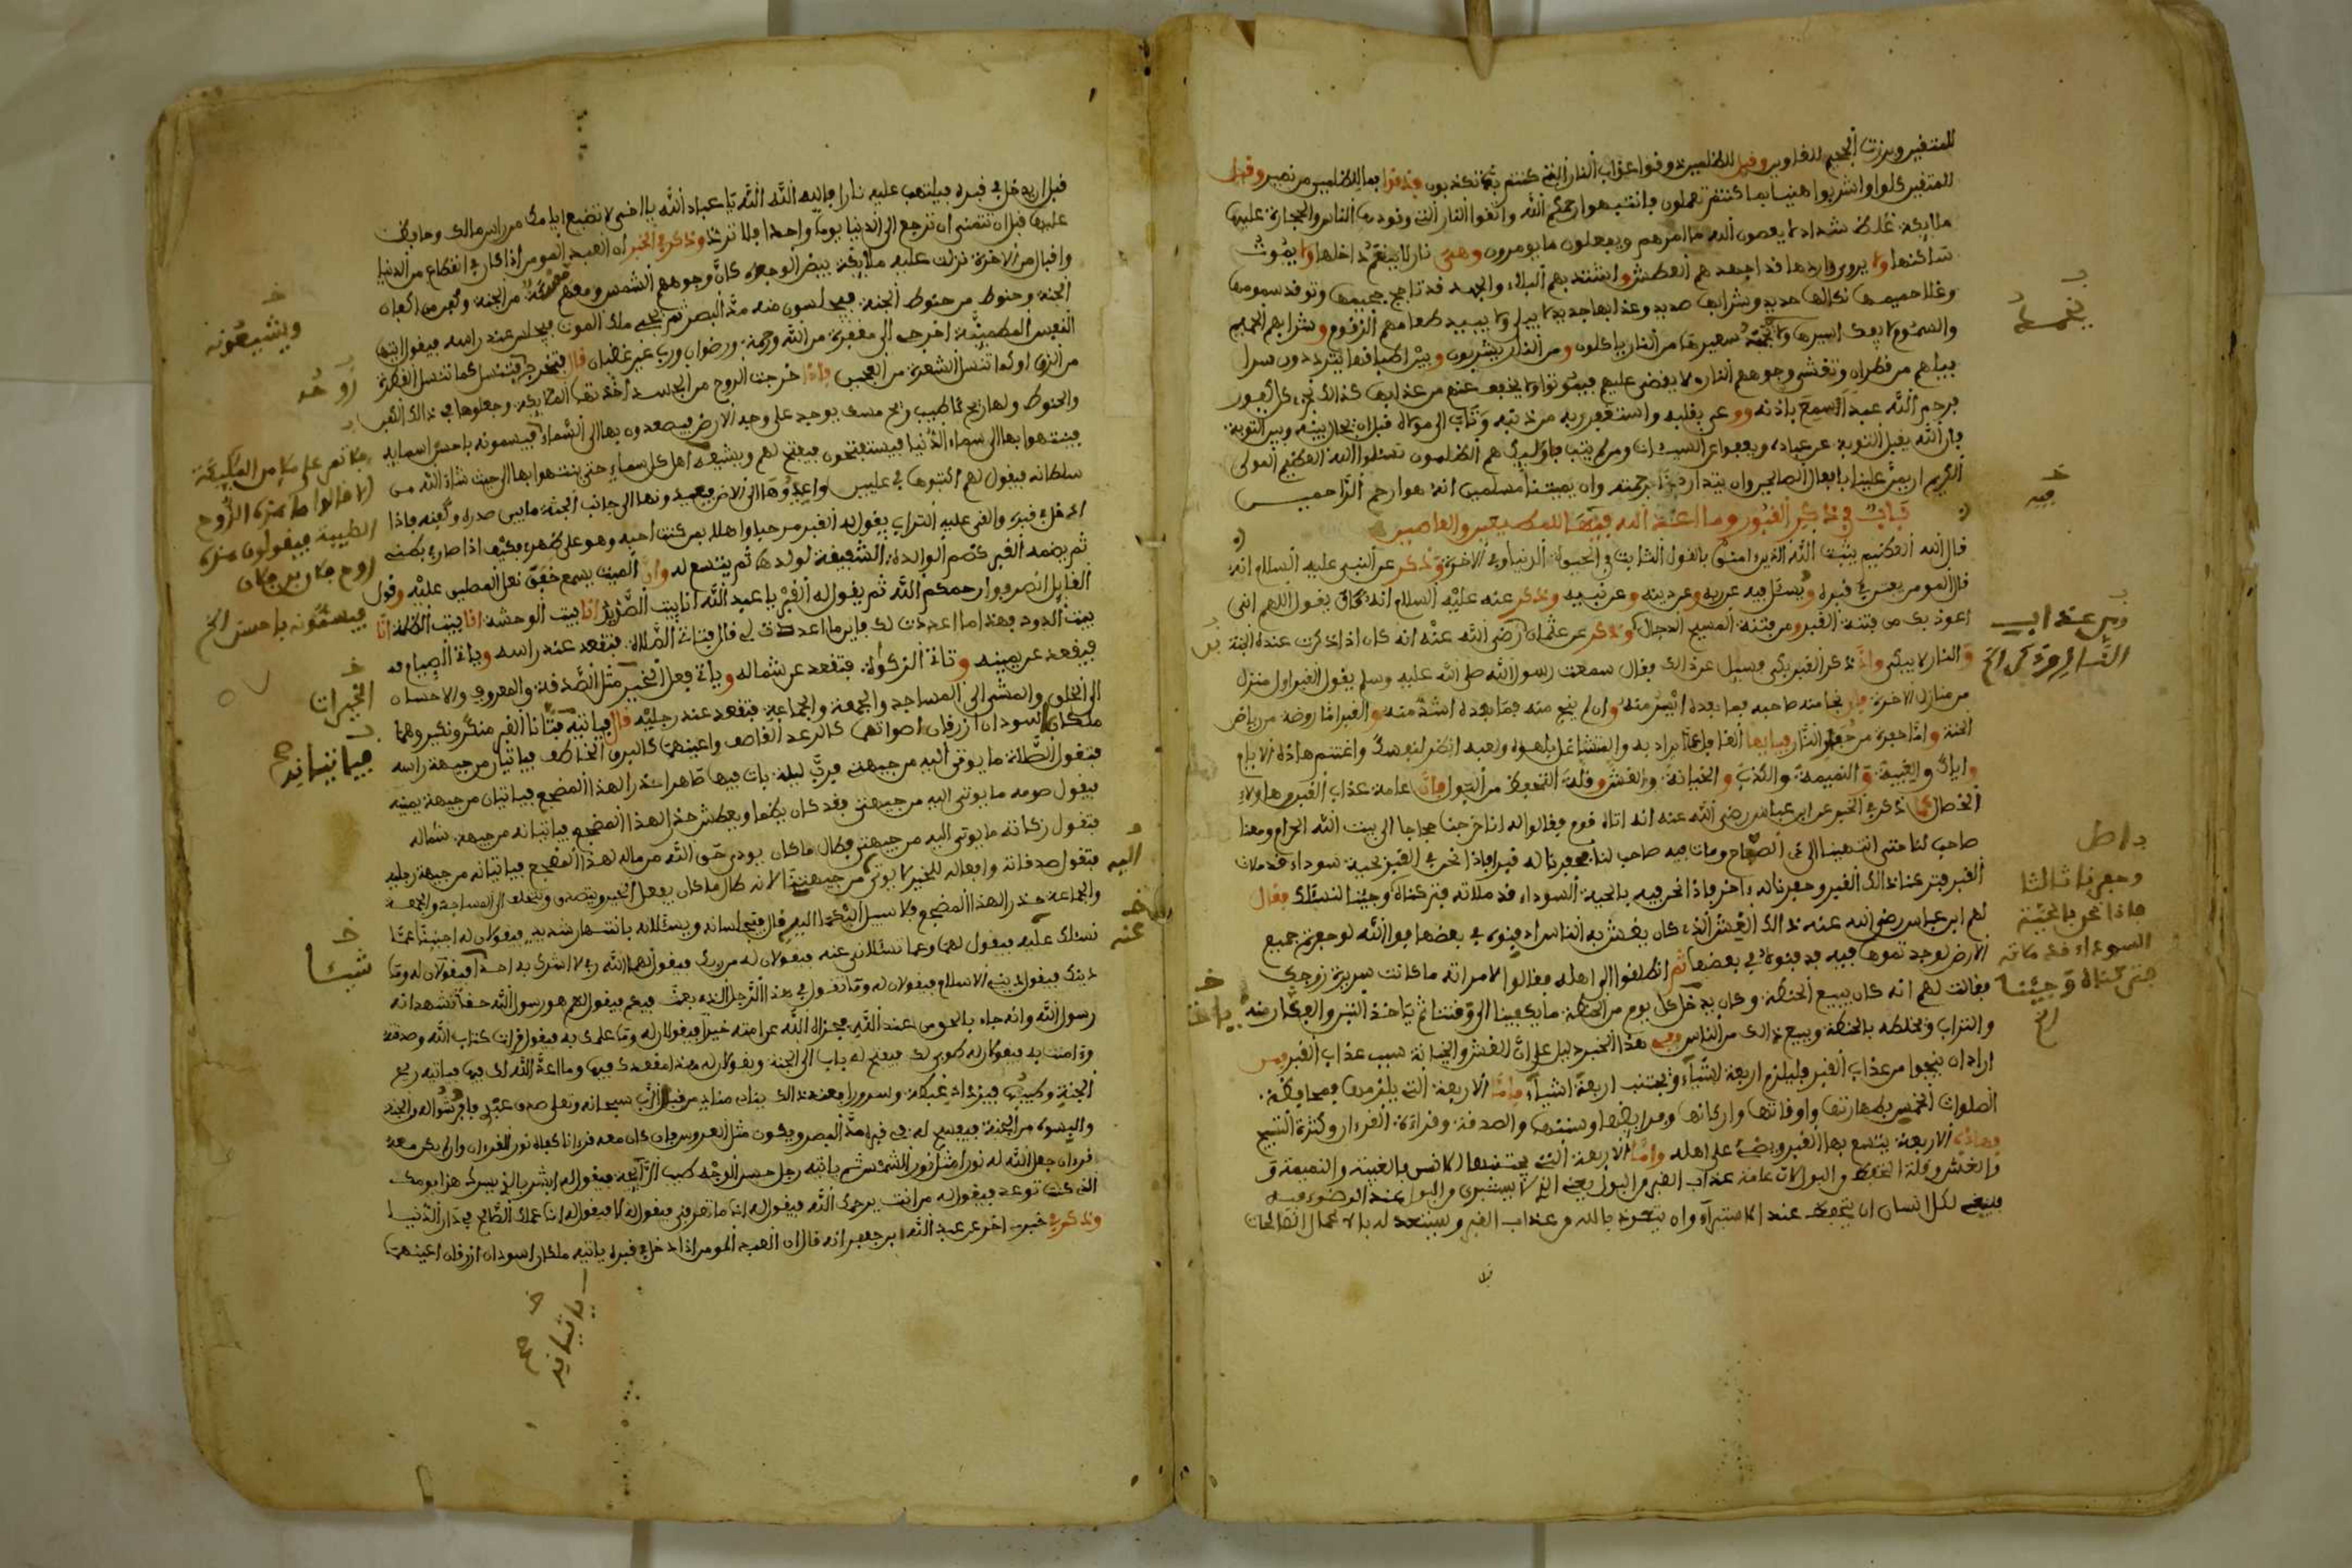 للمتقين وبرزت الجحيم للغاوين وقيل للظلمين ذوقوا عذاب النار التي كنتم بها تكذبون وقد قرا بما للظلمين من نصير وقيل
للمتقين كلوا واشربوا هنيا بما كنتم تعملون فانتبهوا رحمكم الله واتقوا النار التي وقودها الناس والحجارة عليها
ملايكة غلاظ شداد لا يعصون الله ما امرهم ويفعلون ما يومرون وهي نار لا ينعم داخلها ولا يموت
ساكنها ولا يروى واردها قد اجهد هم العطش واشتد بهم البلاء والجهد قد تاجج جحيمها وتوقد سمومها
وغلا حميمها نكالها حديد وشرابها صديد وعذابها جديد لا يبلى ولا يبيد طعامهم الزقوم وشرابهم الحميم
والسموم لا يفك اسيرها ولا سعيرها من النار ياكلون ومن النار يشربون وبين اطباقها يترددون سرا
بيلهم من قطران وتغشى وجوههم النار ولا يقضى عليهم فيموتوا ولا يخفف عنهم من عذابها كذالك نجزي كل كفور
فرحم الله عبدا سمع باذنه ووعى بقلبه واستغفر ربه من ذنبه وتاب الى مولاه قبل ان يحال بينه وبين التوبة
فان الله يقبل التوبة عن عباده ويعفوا عن السيات ومن لم يتب فاوليك هم الظلمون نسئلوا الله العظيم المولى
الكريم ان يمن علينا بافعال الصالحين وان يتداركنا برحمته وان يميتنا مسلمين انه هو ارحم الراحميـن
باب في ذكر القبور وما اعد الله فيها للمطيعين والعاصين
قال الله العظيم يثبت الله الذين امنوا بالقول الثابت في الحيوة الدنيا وفي الاخرة وذكر عن النبي عليه السلام انه
قال المومن يعتبر في قبره ويسئل فيه عن ربه وعن دينه وعن نبيه وذكر عنه عليه السلام انه كان يقول اللهم انى
اعوذ بك من فتنة القبر ومن فتنة المسيح الدجال وذكر عن عثمان رضى الله عنه انه كان اذا ذكرت عنده الجنة
والنار لا يبكي واذا ذكر القبر بكى فسيل عن ذالك فقال سمعت رسول الله صلى الله عليه وسلم يقول القبر اول منزل
من منازل الاخرة فان نجا منه صاحبه فما بعده ايسر منه وان لم ينج منه فما بعده اشد منه والقبر اما روضة من رياض
الجنة واما حفرة من حفر النار فيايها الغافل عما يراد به والمتشاغل بلهوه ولعبه انظر لنفسك واغتنم هاذه الايام
واياك والغيبة والنميمة والكذب والخيانة والغش وقلة التحفظ من البول فان عامة عذاب القبر من هاولاء
الخصال كما ذكر في الخبر عن ابن عباس رضى الله عنه انه اتاه قوم فقالوا له انا خرجنا حجاجا الى بيت الله الحرام ومعنا
صاحب لنا حتى انتهينا الى ذي الصفاح ومات فيه صاحب لنا فحفرنا له قبرا فاذا نحن في القبر بحية سوداء قد ملات
القبر فتركنا ذالك القبر وحفرنا له اخر فاذا نحن فيه بالحية السوداء قد ملاته فتركناه وجينا لنسئلك فقال
لهم ابن عباس رضى الله عنه ذالك الغش الذي كان يغش به الناس ادفنوه في بعضها فوالله لو حفرتم جميع
الارض لوجدتموها فيه فدفنوه في بعضها ثم انطلقوا الى اهله فقالوا لامراته ما كانت سريرة زوجك
فقالت لهم انه كان يبيع الحنطة وكان يدخل كل يوم من الحنطة ما يكفينا الى وقتنا ثم ياخذ التبن والعكارضة
والتراب ويخلطه بالحنطة ويبيع ذالك من الناس وفي هذا الخبر دليل على ان الغش والخيانة سبب عذاب القبر فمن
اراد ان ينجوا من عذاب القبر فليلزم اربعة اشياء ويجتنب اربعة اشياء فاما الاربعة التي يلزمها فمحافظة
الصلوات الخمس بطهارتها واوقاتها واركانها وفرايضها وسننها والصدقة وقراءة القرءان وكثرة التسبيح
فهاذه الاربعة يتسع بها القبر ويضئ على اهله واما الاربعة التي يجتنبها الانس فالغيبة والنميمة و
والغش وقلة التحفظ من البول لان عامة عذاب القبر من البول يعني الذي لا يستبرى من البول عند الوضوء فيـه
فينبغي لكل انسان ان يتحفظ عند الاستبراء وان يتعوذ بالله من عذاب القبر ويستعد له بالاعمال الصالحات
فيه
بين عذاب
باطل
وحفرنا ثالثا
فاذا نحن بالحية
السوداء قد ملاته
فتركناه وجئنا
الخ
قبل ان يدخل في قبره فيلتهب عليه نارا فالله الله الله يا عباد الله يا اخي لا تضيع ايامك من راس مالك وحافظ
عليها قبل ان تتمنى ان ترجع الى الدنيا يوما واحدا فلا ترد وذكر في الخبر ان العبد المومن اذا كان في انقطاع من الدنيا
واقبال من الاخرة نزلت عليه ملايكة بيض الوجوه كان وجوههم الشمس ومعهم من الجنة وكفن من اكفان
الجنة وحنوط من حنوط الجنة فيجلسون منه مد البصر ثم يجئ ملك الموت فيجلس عند راسه فيقول ايتها
النفس المطمينة اخرجى الى مغفرة من الله ورحمة ورضوان ورب غير غضبان قال فتخرج فتنسل كما تنسل القطرة
من الزق او كما تنسل الشعرة من العجين فاذا خرجت الروح من الجسد اخذتها الملايكة وجعلوها في ذالك الكفن
والحنوط ولها ريح كاطيب ريح مسك يوجد على وجه الارض فيصعدون بها الى السماء فيسمونه باحسن اسمايه
فينتهوا بها الى سماء الدنيا فيستفتحون فيفتح لهم ويشيعه اهل كل سماء حتى ينتهوا بها الى حيث شاء الله من
سلطانه فيقول لهم اكتبوها في عليين واعيدوها الى الارض فيعيدونها الى جانب الجثة ما بين صدره وكفنه فاذا
ادخل في قبره والقى عليه التراب يقول له القبر مرحبا واهلا بمن كنت احبه وهو على ظهري فكيف اذا صار في بطنى
ثم يضمه القبر كضم الوالدة الشفيقة لولدها ثم يتسع له وان الميت يسمع خفق نعل المصلين عليه وقول
القايل انصرفوا رحمكم الله ثم يقول له القبر يا عبد الله انا بيت الضيق انا بيت الوحشة انا بيت الظلمة انا
بيت الدود فهذا ما اعددت لك فاين ما اعددت لي قال فتاتي الصلاة فتقعد عند راسه وياتي الصيام
فيقعد عن يمينه وتاتي الزكوة فتقعد عن شماله وياتي فعل الخير مثل الصدقة والمعروف والاحسان
الى الخلق والمشى الى المساجد والجمعة والجماعة فتقعد عند رجليه قال فياتيه فتانا القبر منكر ونكير وهما
ملكان اسودان ازرقان اصواتهما كالرعد القاصف واعينهما كالبرق الخاطف فياتيان من جهة راسه
فتقول الصلاة ما يوتى اليه من جهتي فرب ليلة بات فيها ظاهرا حذرا لهذا المضجع فياتيان من جهة يمينه
فيقول صومه ما يوتى اليه من جهتي فقد كان يظما ويعطش حذرا لهذا المضجع فياتيانه من جهة شماله
فتقول زكاته ما يوتى اليه من جهتي فطال ما كان يودى حق الله من ماله لهذا المضجع فياتيانه من جهة رجليه
فتقول صدقاته وافعاله للخير لا يوتى من جهتنا لانه طال ما كان يفعل الخير ويتصدق ويختلف الى المساجد والجمعة
والجماعة حذرا لهذا المضجع فلا سبيل لكما اليه قال فيجلسانه ويسئلانه بانتهار شديد فيقولان له اجبنا عما
نسئلك عليه فيقول لهما وعما تسئلانى عنه فيقولان له من ربك فيقول لهما الله ربي لا اشرك به احدا فيقولان له وما
دينك فيقول ديني الاسلام فيقولان له وما تقول في هذا الرجل الذي بعث فيكم فيقول نعم هو رسول الله حقا نشهد انه
رسول الله وانه جاء بالحق من عند الله فجزاه الله عن امته خيرا فيقولان له وما علمك به فيقول قرات كتاب الله وصدقته
وءامنت به فيقولان له طوبى لك فيفتح له باب الى الجنة ويقولان له هذا مقعدك فيها وما اعد الله لك فيها فياتيه ريح
الجنة وطيبها فيزداد غبطة وسرورا فعند ذالك ينادي مناد من قبل الرب سبحانه وتعلى صدق عبدي فافرشوا له من الجنة
والبسوه من الجنة فيفسح له في قبره مد البصر ويكون مثل العروس فان كان معه قرءانا كفاه نور القرءان وان لم يكن معه
قرءان جعل الله له نورا مثل نور الشمس ثم ياتيه رجل حسن الوجه طيب الرايحة فيقول له ابشر بالذي يسرك هذا يومك
الذي كنت توعد فيقول له من انت يرحمك الله فيقول له اما تعرفني فيقول له لا فيقول له انا عملك الصالح في دار الدنيـا
وذكر في خبر اخر عن عبد الله بن جعفر انه قال ان العبد المومن اذا دخل في قبره ياتيه ملكان اسودان ازرقان اعينهما
ويشيعونه
الا قالوا ما هذه الروح
الطيبة فيقولون هذه
روح فلان بن فلان
فيسمونه باحسن الخ
الخيرات
فياتيانه
اليه
عنه
شيئا
ياتيانه